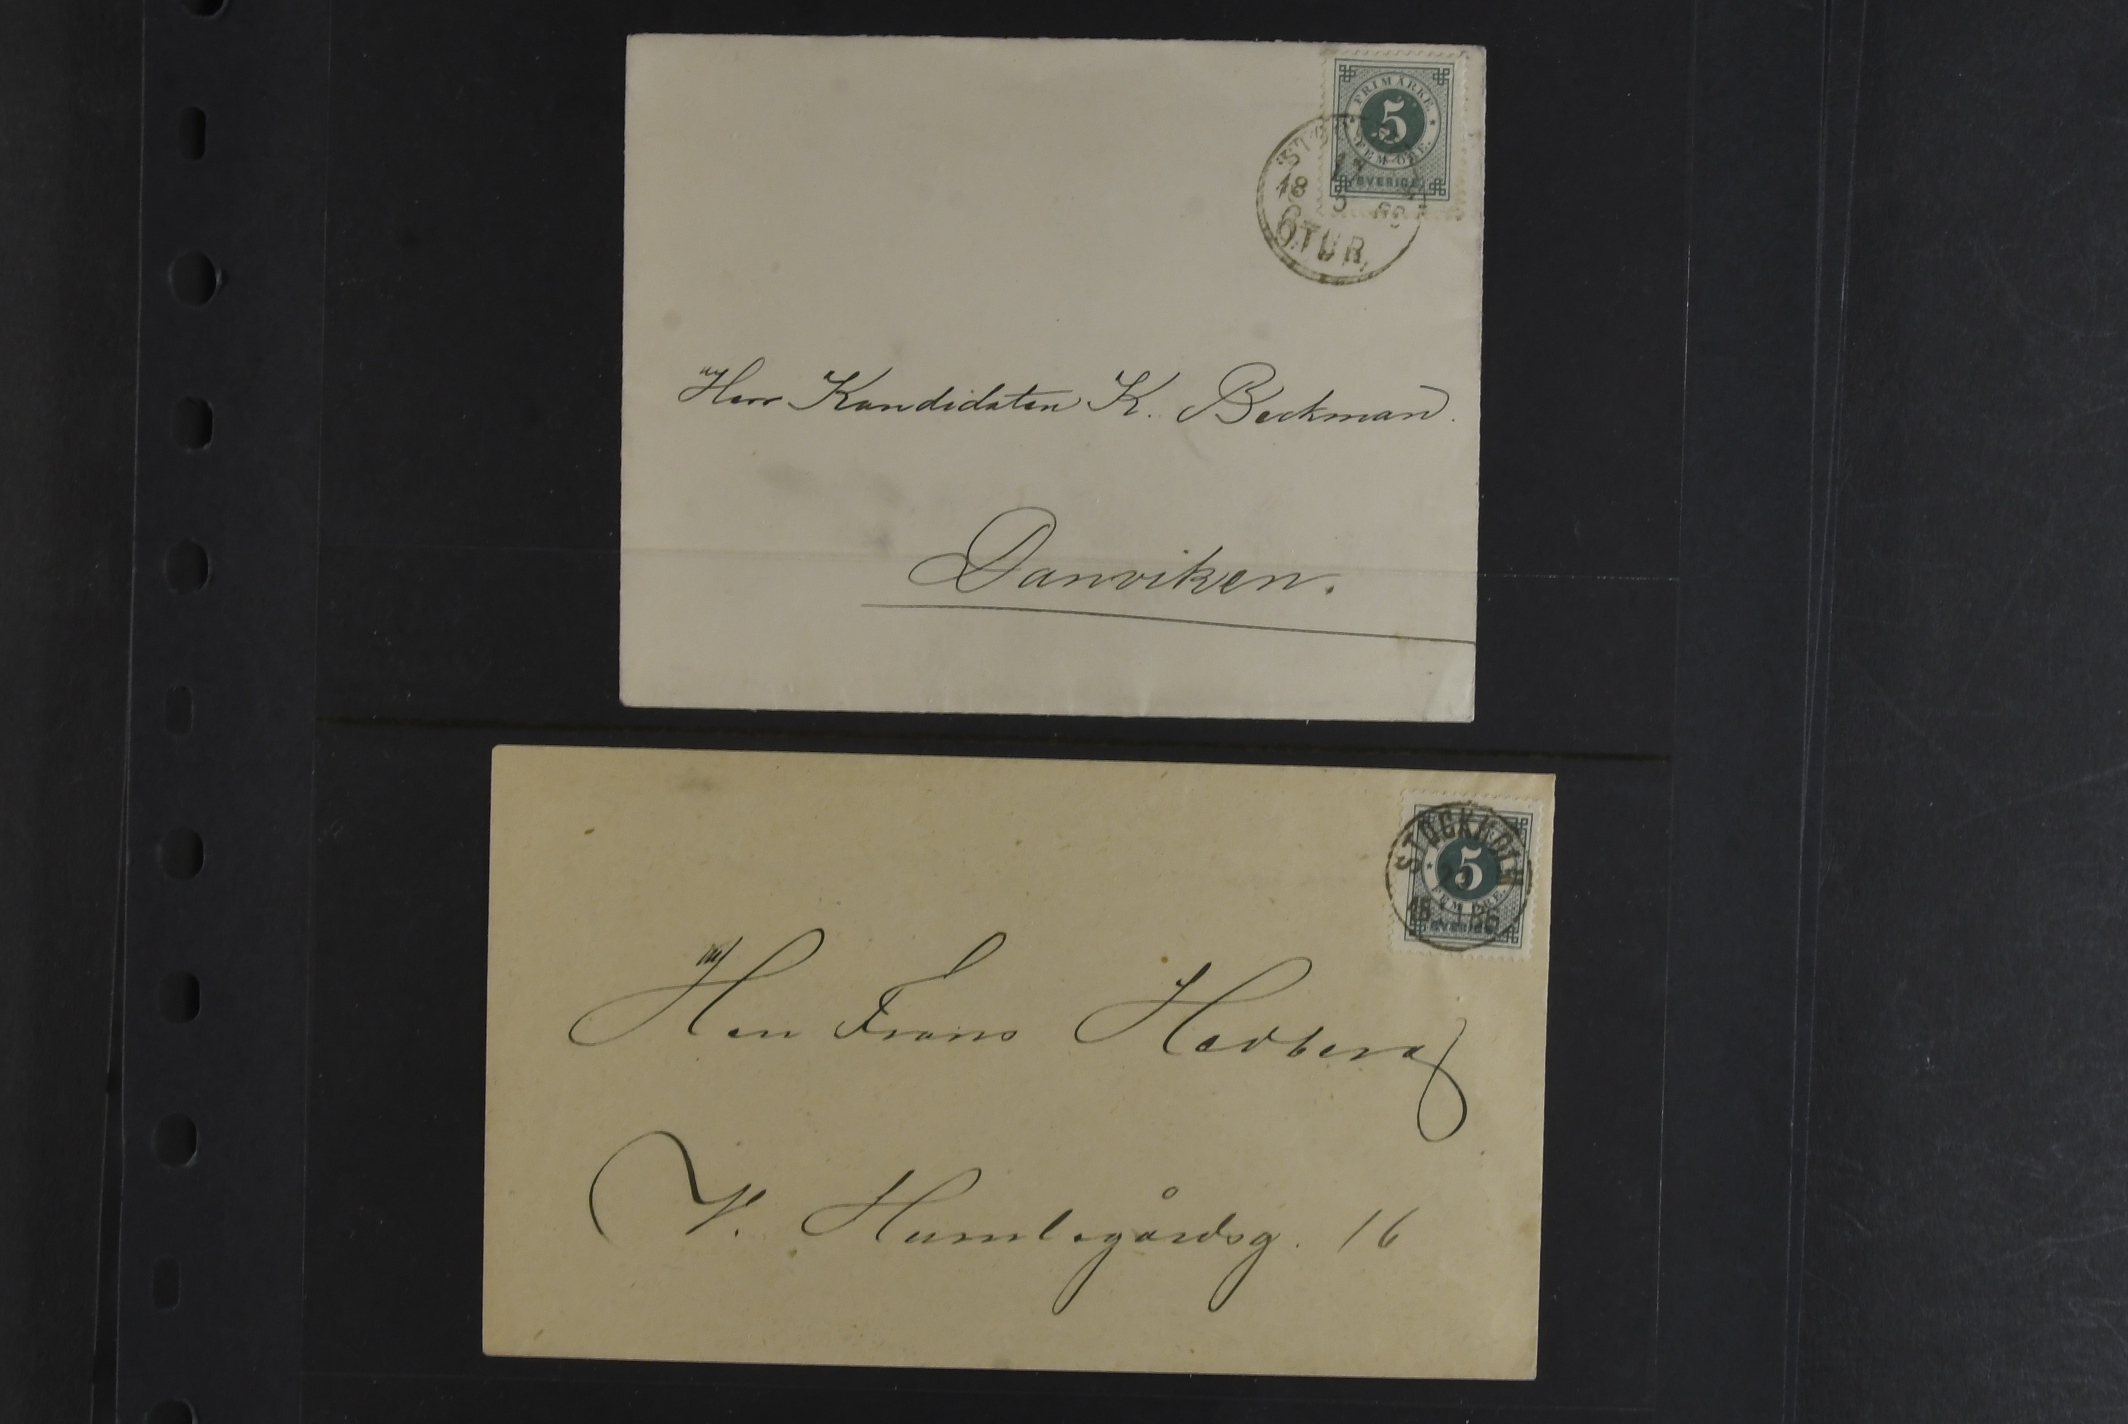 FRIMÄRKE.
5
FEM ÖRE.
SVERIGE
18
6 TUR.
Herr Kandidaten K. Beckman.
Danviken.
STOCKHOLM
5
FEM ÖRE.
SVERIGE
Herr Frans Hedberg
V. Humlegårdsg. 16